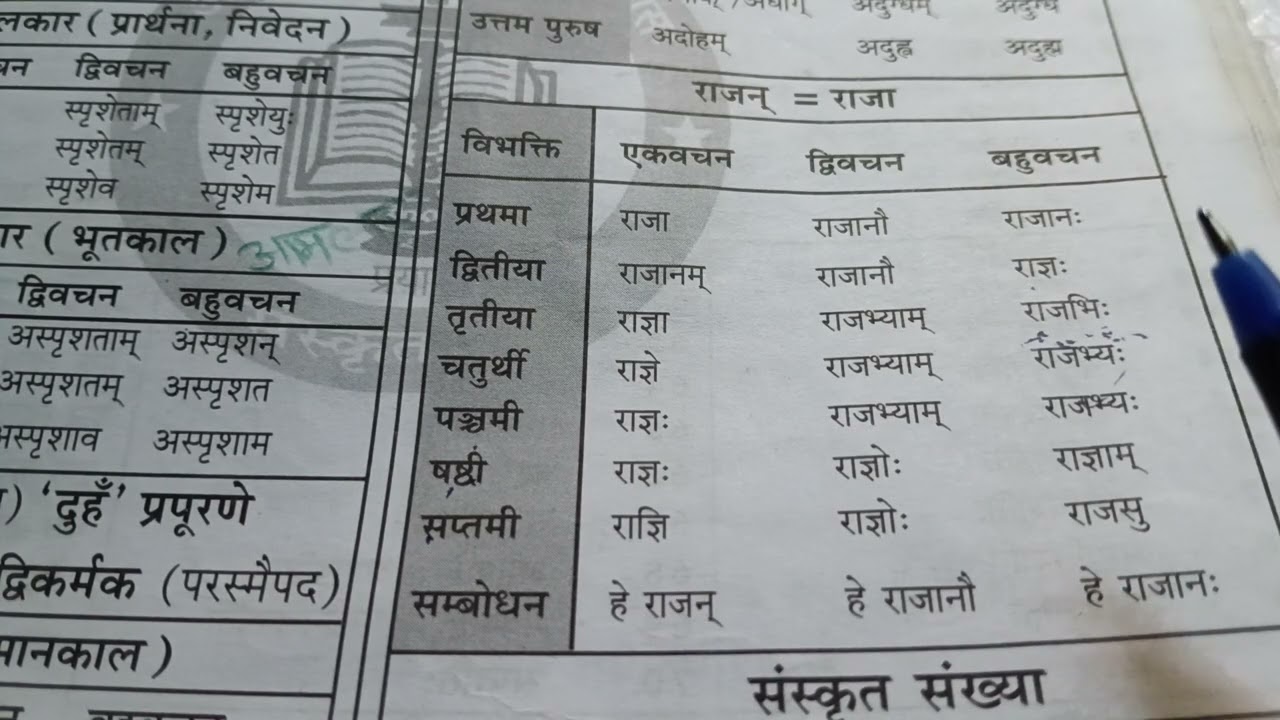 लकार ( प्रार्थना, निवेदन )
द्विवचन बहुवचन
स्पृशेताम् स्पृशेयुः
स्पृशेतम् स्पृशेत
स्पृशेव स्पृशेम
( भूतकाल )
द्विवचन बहुवचन
अस्पृशताम् अस्पृशन्
अस्पृशतम् अस्पृशत
अस्पृशाव अस्पृशाम
) 'दुहँ' प्रपूरणे
द्विकर्मक (परस्मैपद)
उत्तम पुरुष अदोहम् अदुह्व अदुह्म
राजन् = राजा
विभक्ति एकवचन द्विवचन बहुवचन
प्रथमा राजा राजानौ राजानः
द्वितीया राजानम् राजानौ राज्ञः
तृतीया राज्ञा राजभ्याम् राजभिः
चतुर्थी राज्ञे राजभ्याम् राजभ्यः
पञ्चमी राज्ञः राजभ्याम् राजभ्यः
षष्ठी राज्ञः राज्ञोः राज्ञाम्
सप्तमी राज्ञि राज्ञोः राजसु
सम्बोधन हे राजन् हे राजानौ हे राजानः
संस्कृत संख्या